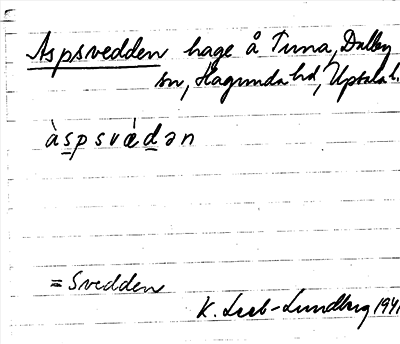 Aspsvedden hage å Tuna, Dalby
sn, Hagunda hd, Uppsala l.
àspsvǽdən
= Svedden
K. Leeb-Lundberg 1941